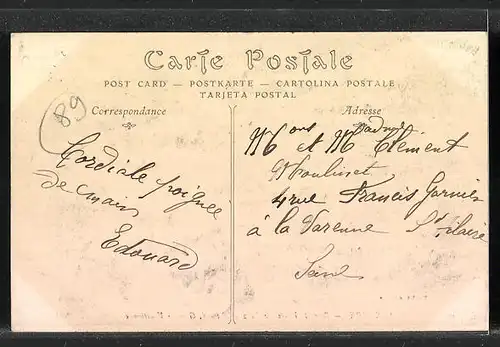 Carte Postale
POST CARD — POSTKARTE — CARTOLINA POSTALE
TARJETA POSTAL
Correspondance
Adresse
89
Cordiale poignée
de main
Edouard
et Clément
4 rue Francis Garnier
à la Varenne St Hilaire
Seine